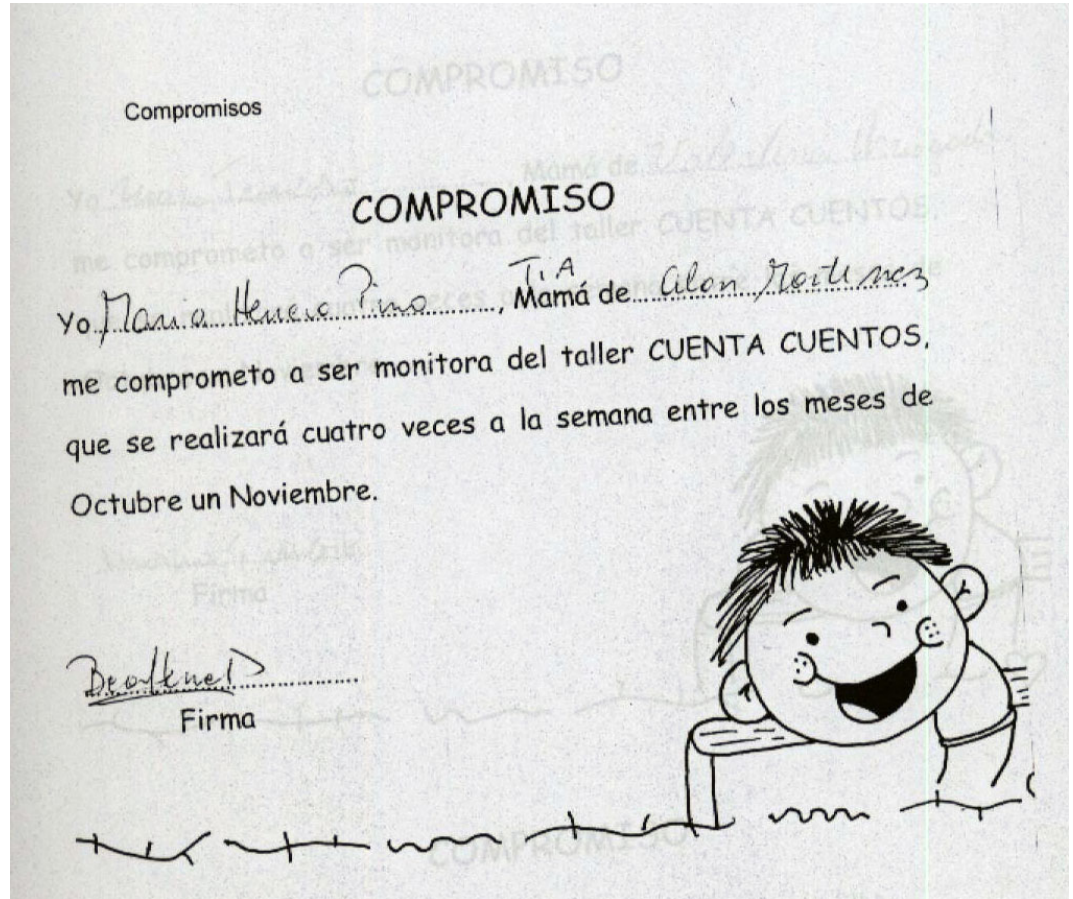 Compromisos
COMPROMISO
TIA
Yo Maria Pino, Mamá de Alon Martinez
me comprometo a ser monitora del taller CUENTA CUENTOS,
que se realizará cuatro veces a la semana entre los meses de
Octubre un Noviembre.
Firma
COMPROMISO